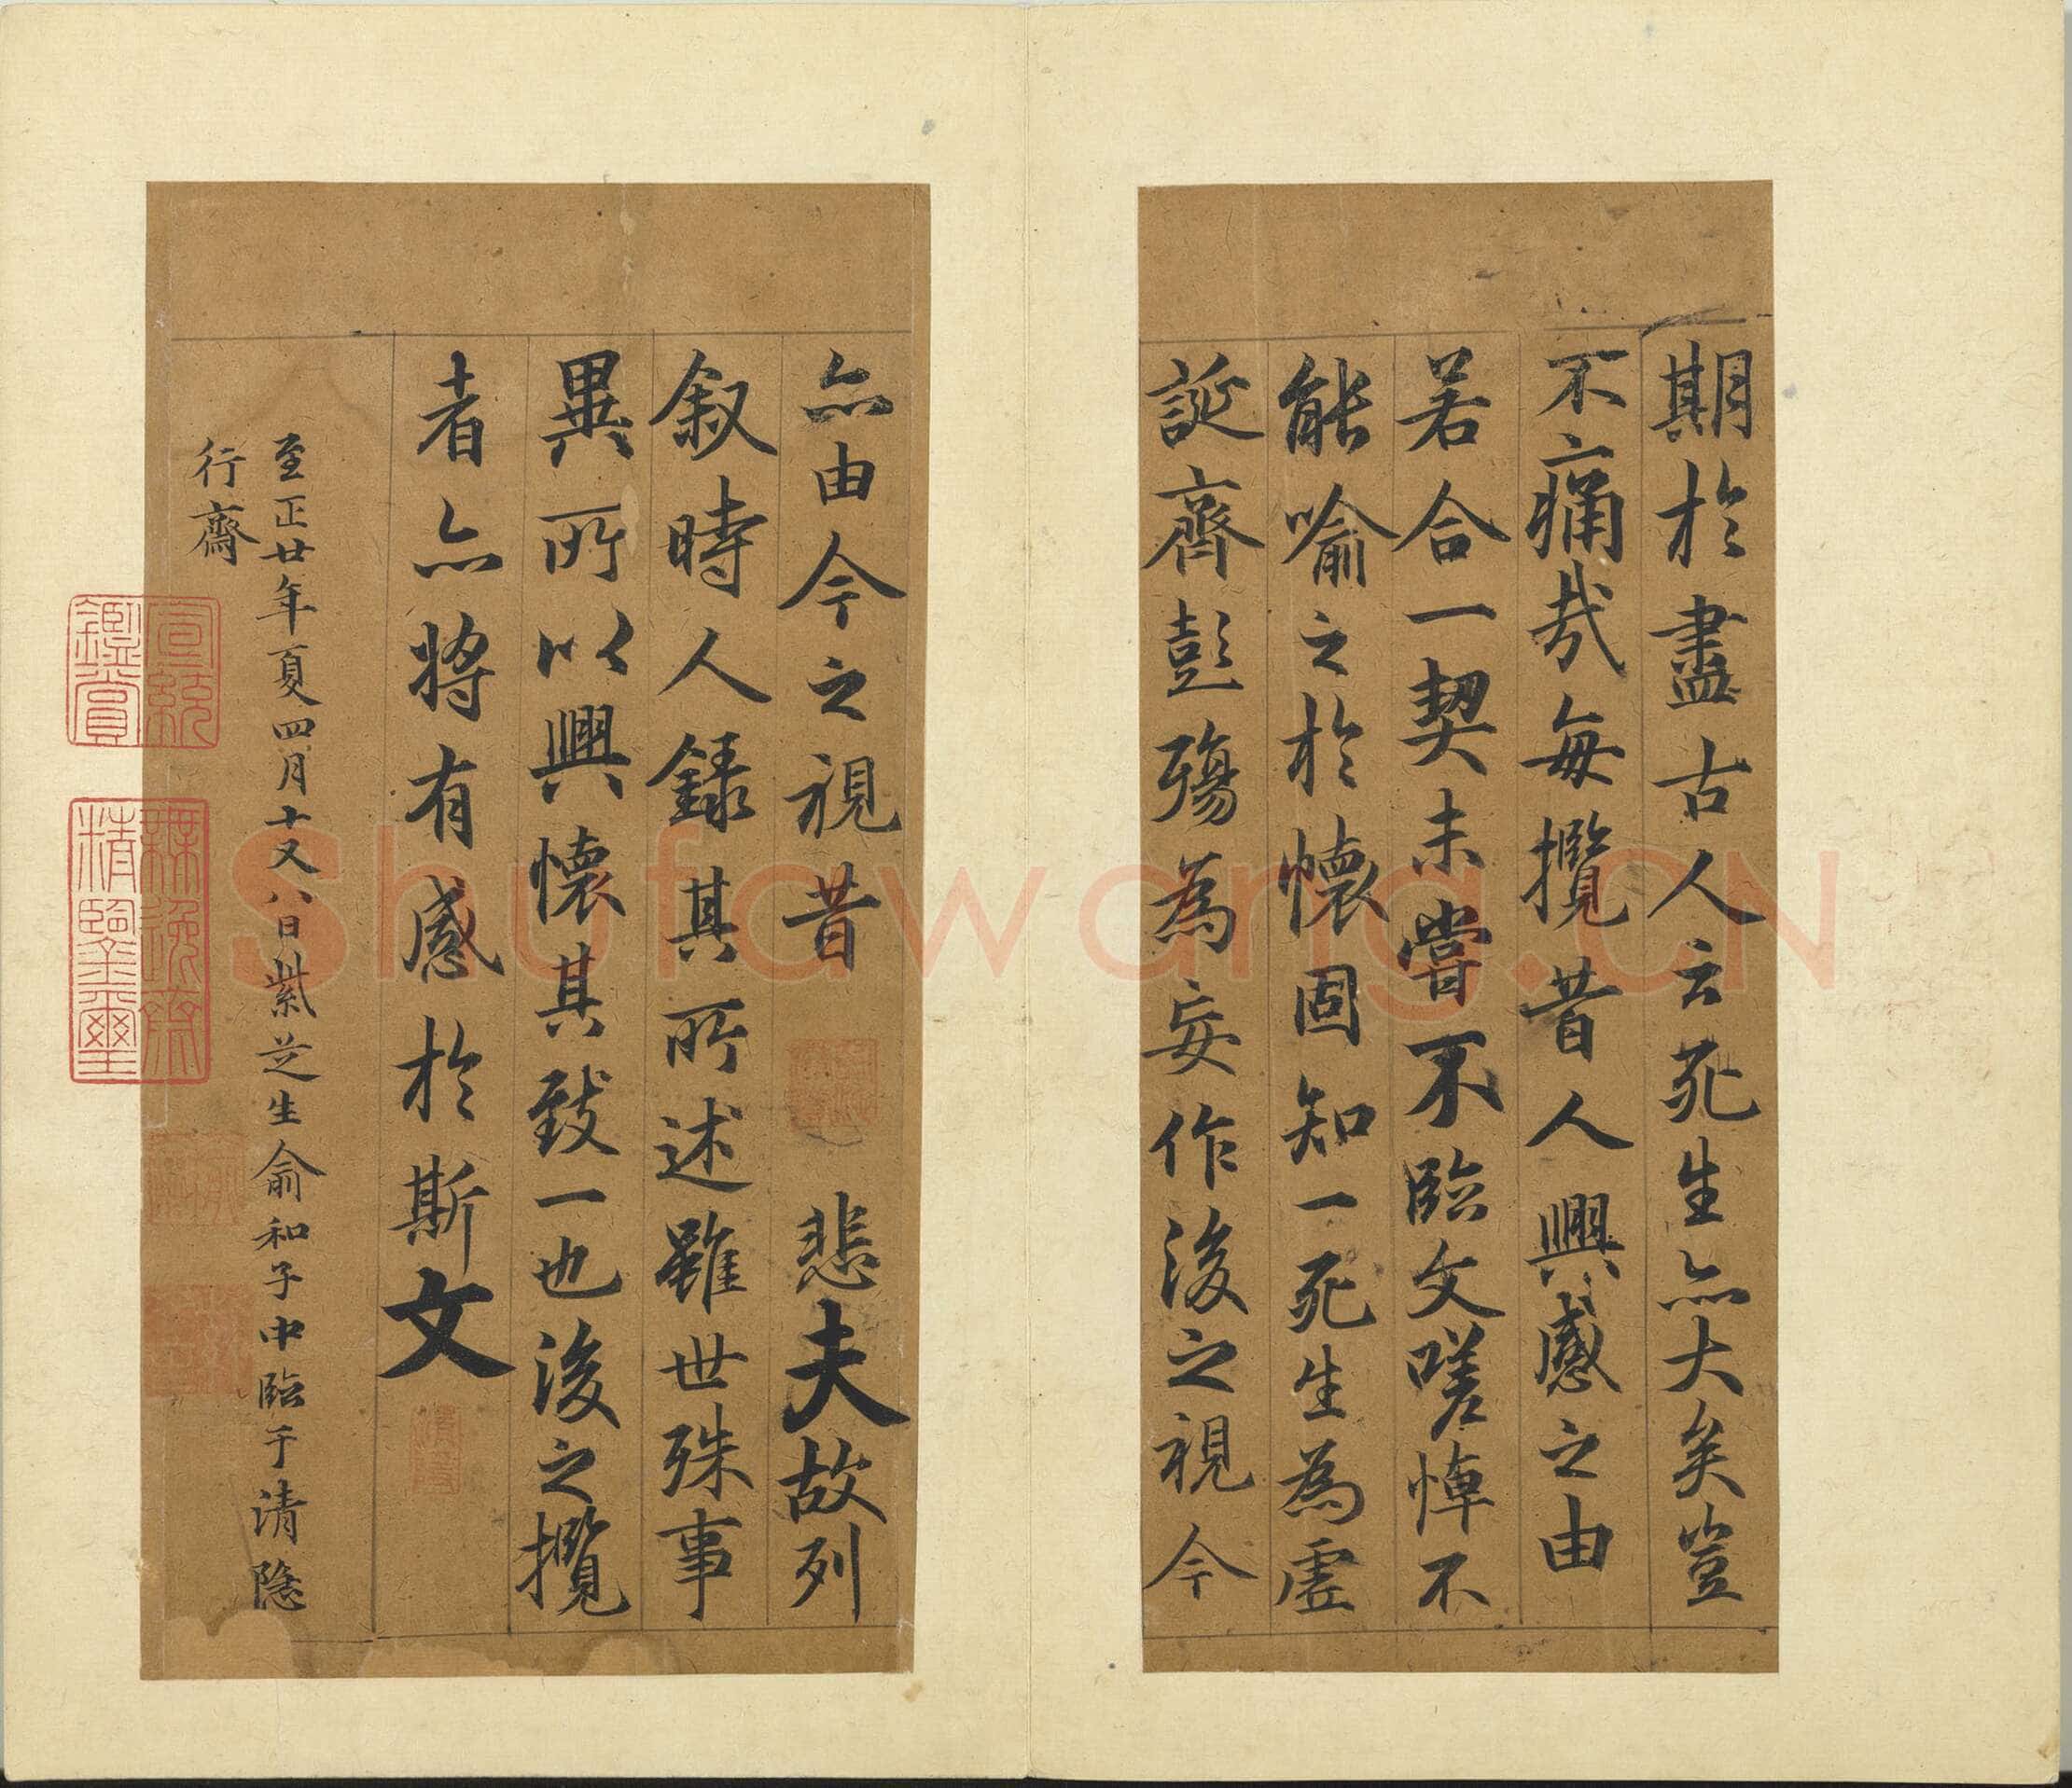 期於盡古人云死生亦大矣豈
不痛哉每攬昔人興感之由
若合一契未嘗不臨文嗟悼不
能喻之於懷固知一死生為虛
誕齊彭殤為妄作後之視今
亦由今之視昔 悲夫故列
叙時人錄其所述雖世殊事
異所以興懷其致一也後之攬
者亦將有感於斯文
至正廿年夏四月十又八日紫芝生俞和子中臨于清隱
行齋
宣統
鑑賞
無逸齋
精鑒璽
Shufawang.CN